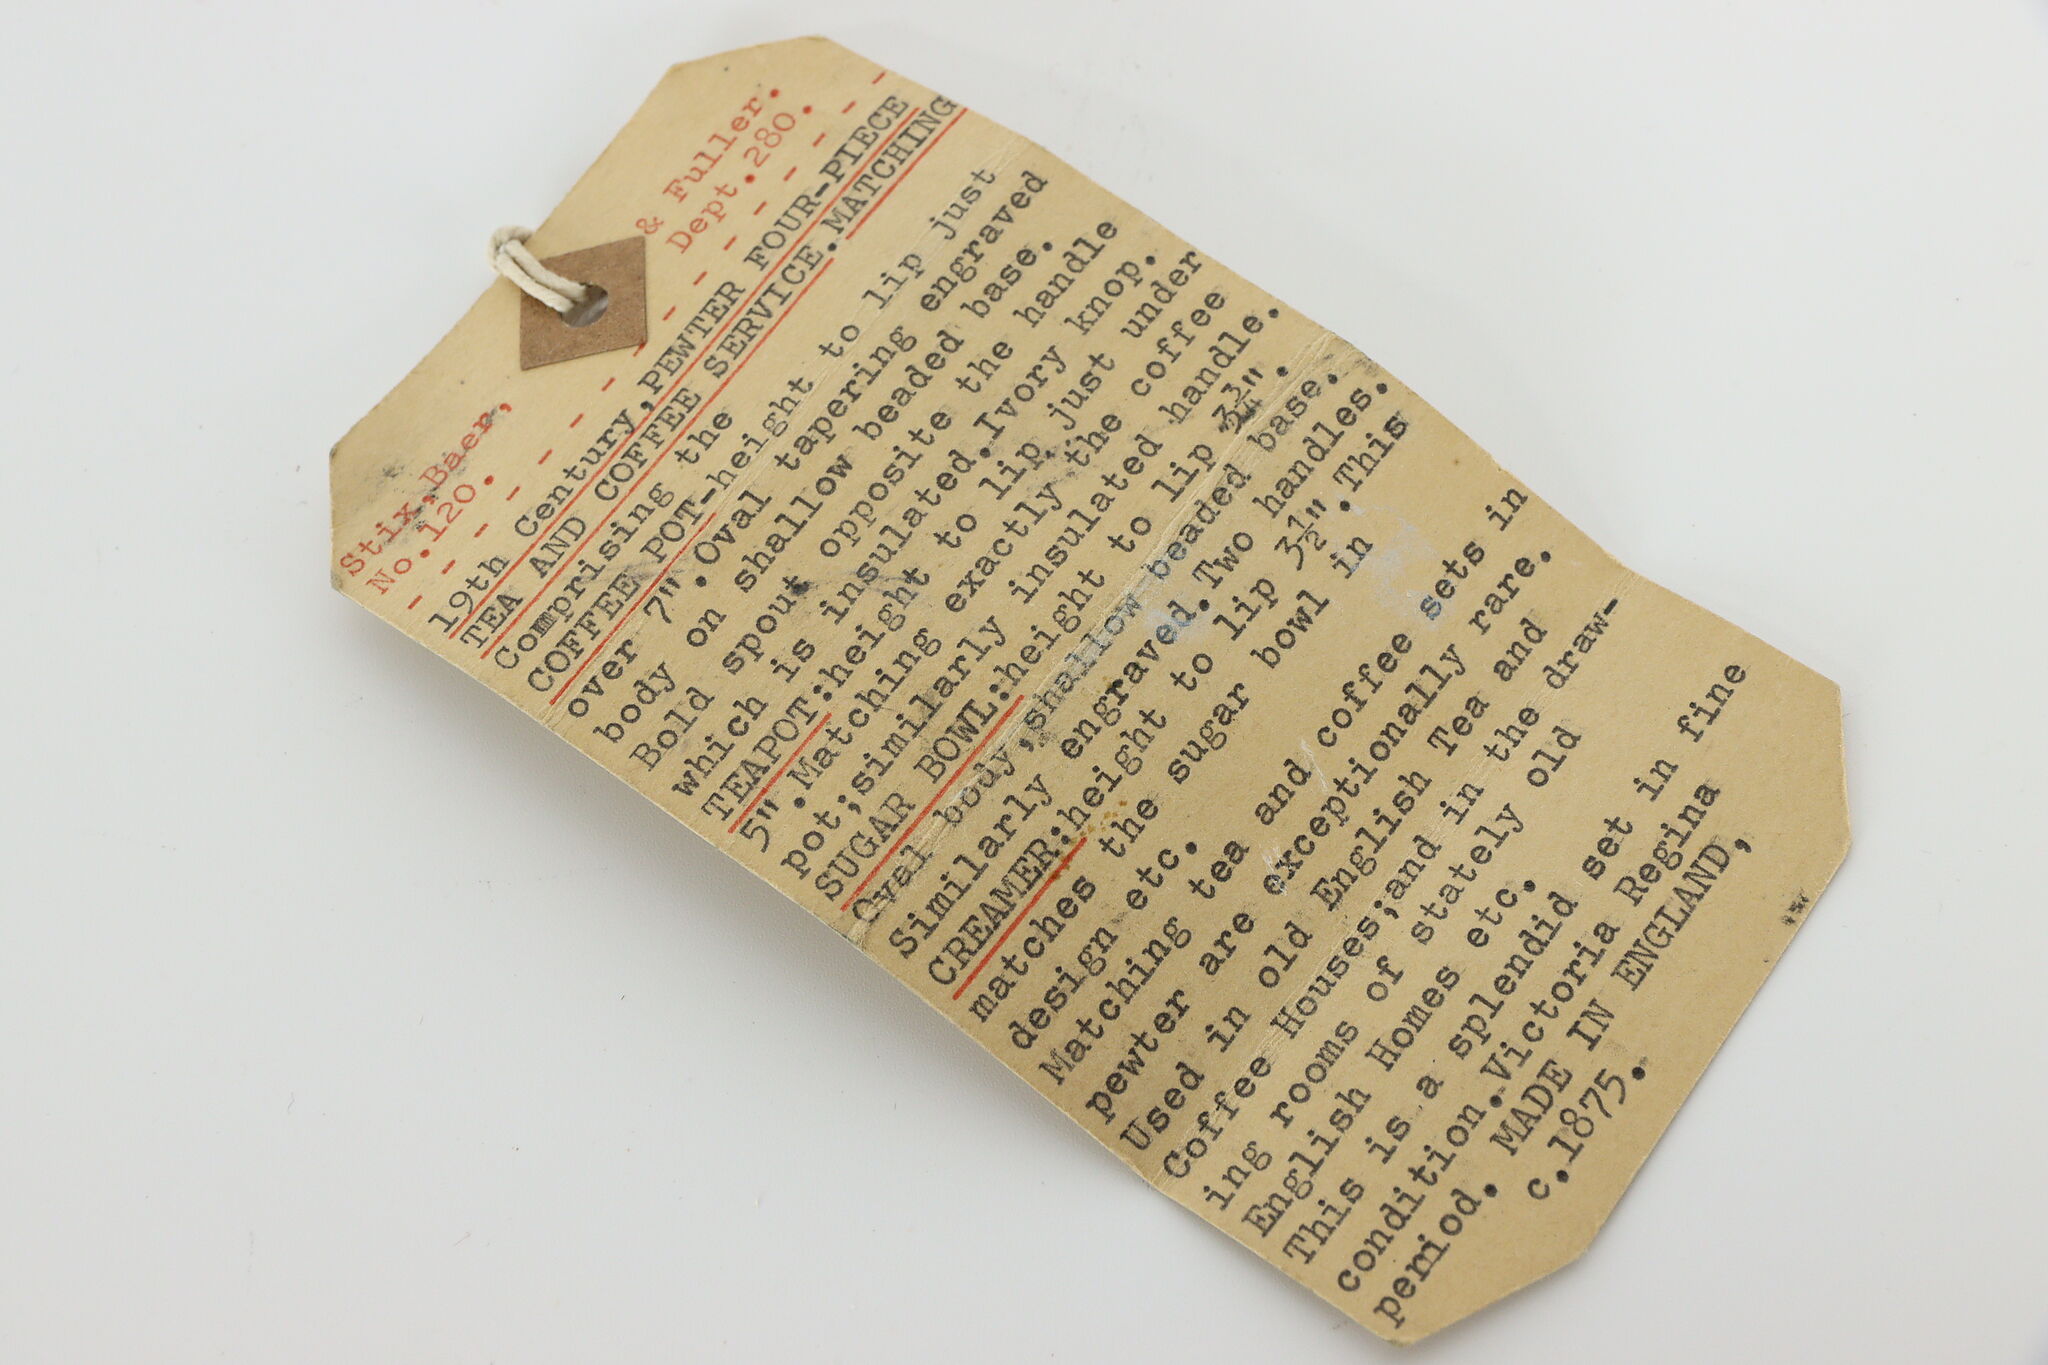 Stix,Baer, & Fuller.
No.120. Dept.280.
- - - - - - - - - - - - - - -
19th Century,PEWTER FOUR-PIECE
TEA AND COFFEE SERVICE.MATCHING
Comprising the
COFFEE POT-height to lip just
over 7".Oval tapering engraved
body on shallow beaded base.
Bold spout opposite the handle
which is insulated.Ivory knop.
TEAPOT:height to lip,just under
5".Matching exactly the coffee
pot;similarly insulated handle.
SUGAR BOWL:height to lip 3¾".
Oval body,shallow beaded base.
Similarly engraved.Two handles.
CREAMER:height to lip 3½".This
matches the sugar bowl in
design etc.
Matching tea and coffee sets in
pewter are exceptionally rare.
Used in old English Tea and
Coffee Houses;and in the draw-
ing rooms of stately old
English Homes etc.
This is a splendid set in fine
condition.Victoria Regina
period. MADE IN ENGLAND,
c.1875.